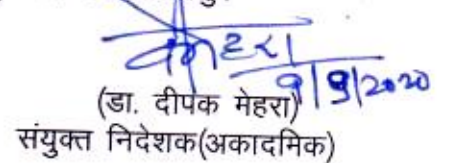 9/9/2020
(डा. दीपक मेहरा)
संयुक्त निदेशक(अकादमिक)